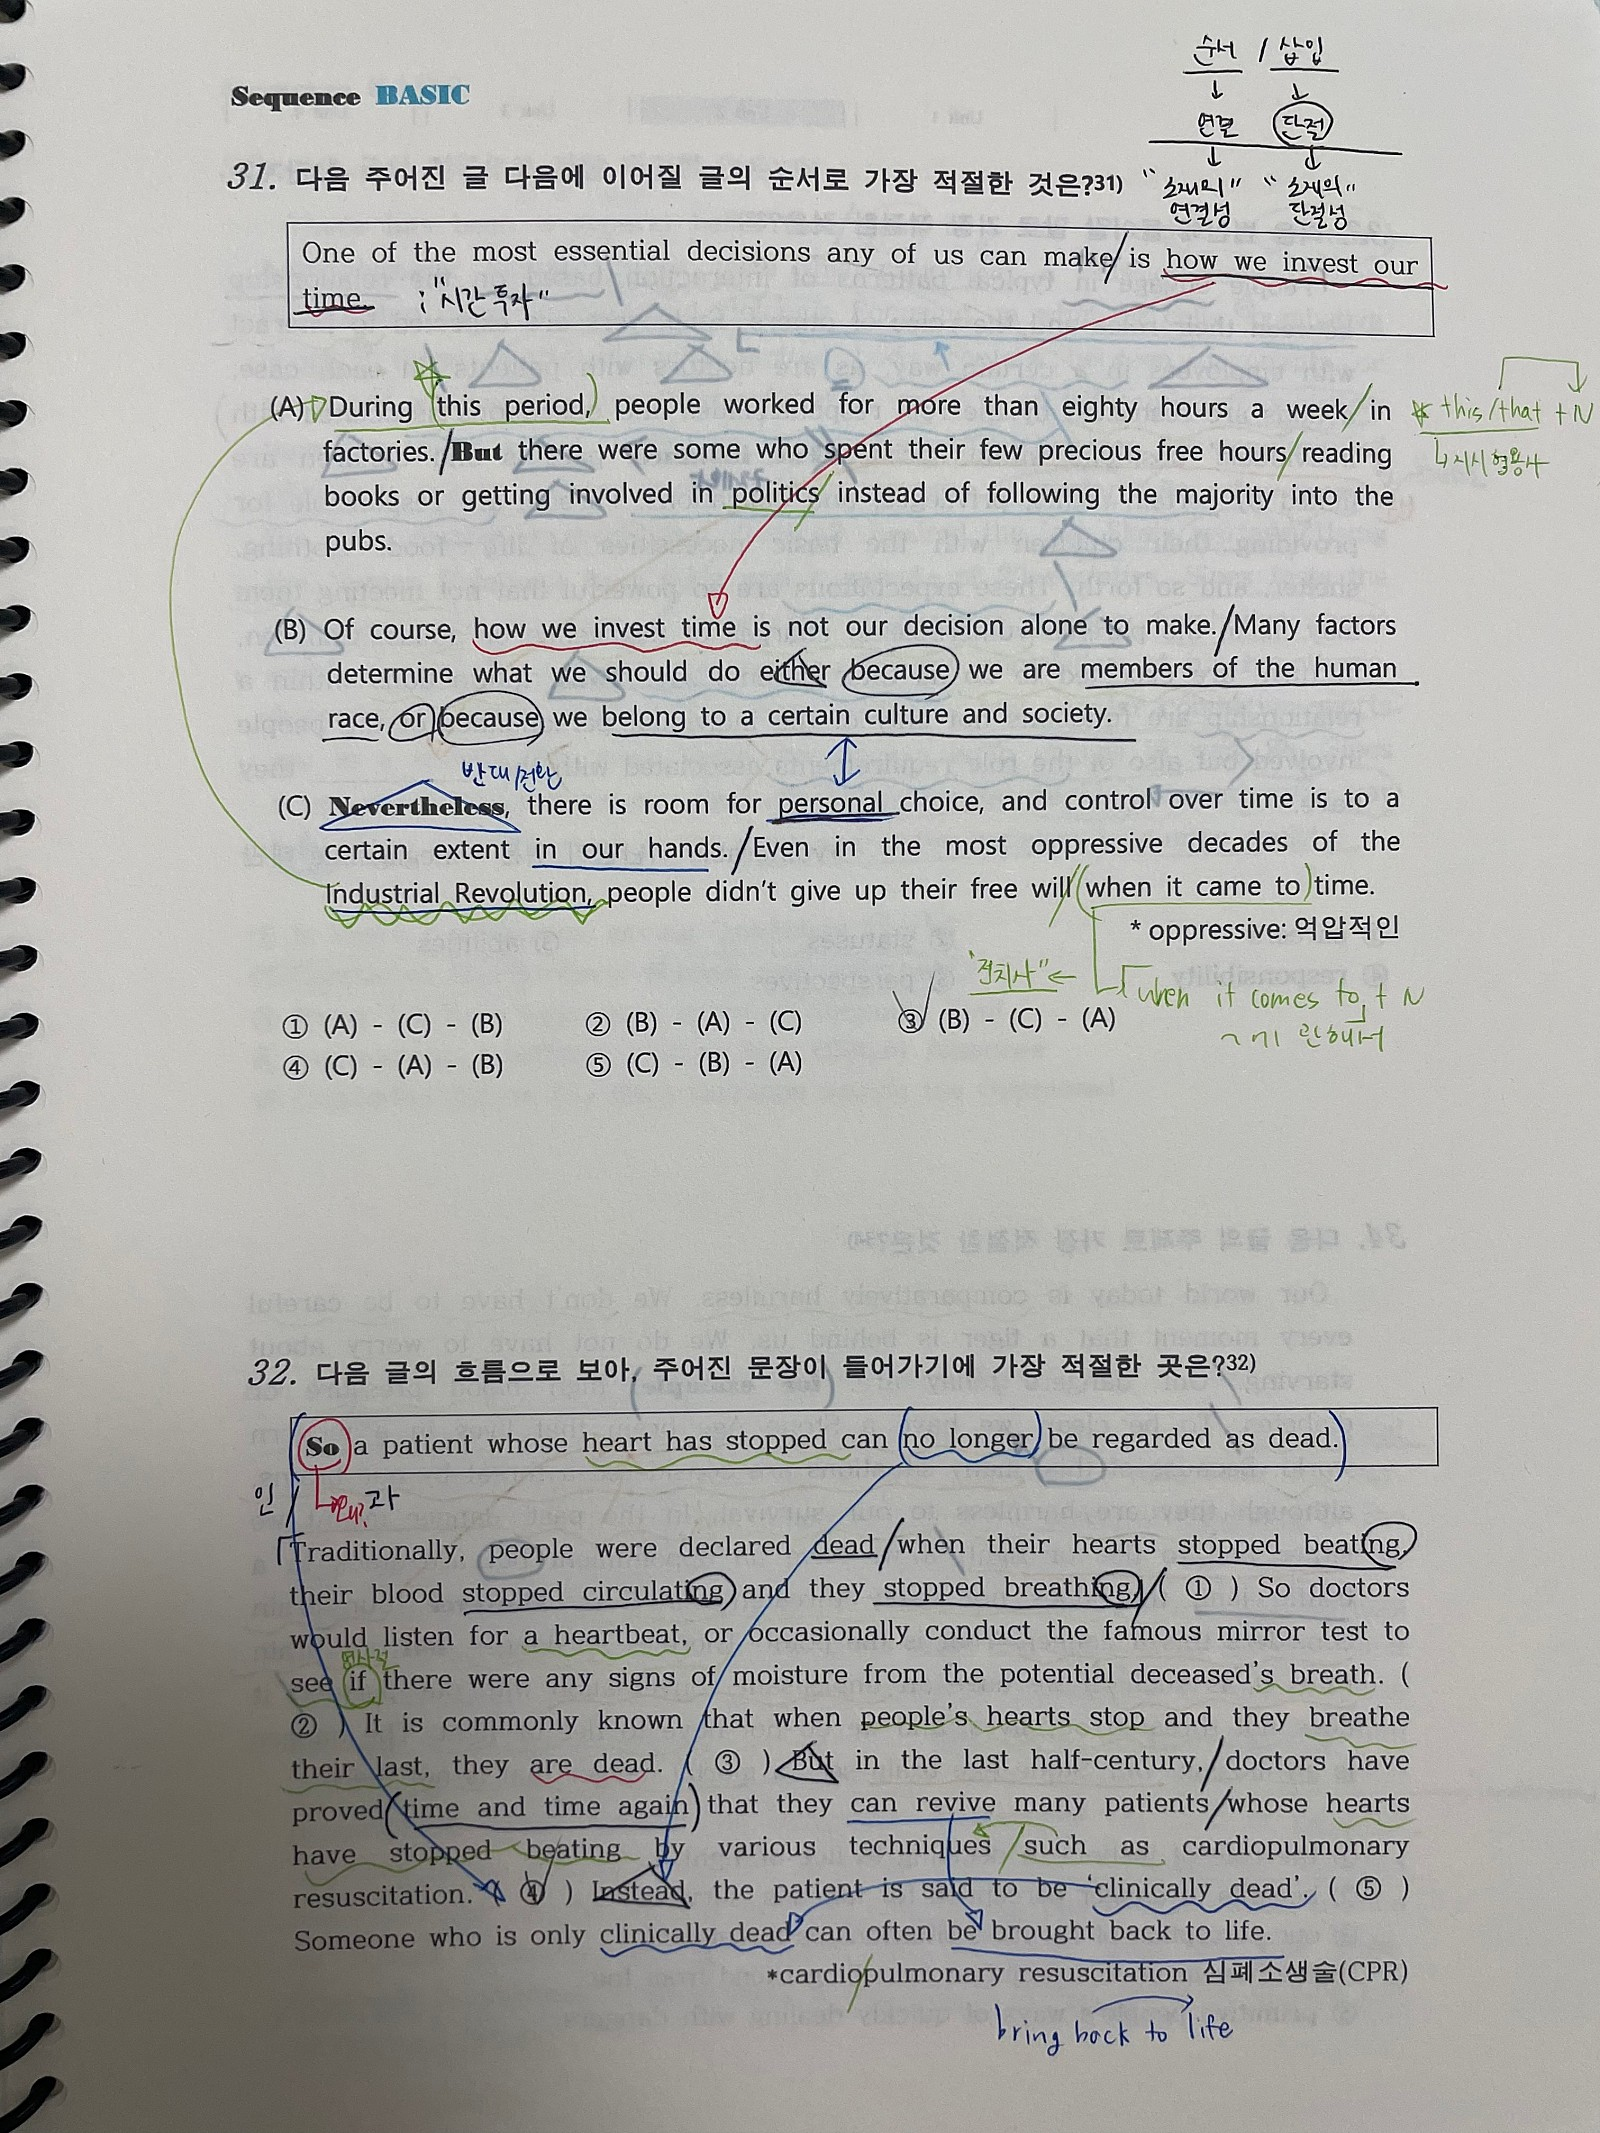 순서 / 삽입
↓ ↓
연결 단절
↓ ↓
"소재의" "소재의"
연결성 단절성
Sequence BASIC
31. 다음 주어진 글 다음에 이어질 글의 순서로 가장 적절한 것은?31)
One of the most essential decisions any of us can make/is how we invest our
time. ; "시간 투자"
(A) During this period, people worked for more than eighty hours a week/in
factories./But there were some who spent their few precious free hours/reading
books or getting involved in politics/instead of following the majority into the
pubs.
this/that + N
↳지시형용사
(B) Of course, how we invest time is not our decision alone to make./Many factors
determine what we should do either because we are members of the human
race, or because we belong to a certain culture and society.
반대/전환
(C) Nevertheless, there is room for personal choice, and control over time is to a
certain extent in our hands./Even in the most oppressive decades of the
Industrial Revolution, people didn't give up their free will/(when it came to)time.
* oppressive: 억압적인
"전치사" ← when it comes to + N
~에 관해서
① (A) - (C) - (B) ② (B) - (A) - (C) ③ (B) - (C) - (A)
④ (C) - (A) - (B) ⑤ (C) - (B) - (A)
32. 다음 글의 흐름으로 보아, 주어진 문장이 들어가기에 가장 적절한 곳은?32)
(So a patient whose heart has stopped can (no longer) be regarded as dead.)
인 / 과
Traditionally, people were declared dead/when their hearts stopped beating,
their blood stopped circulating and they stopped breathing./( ① ) So doctors
would listen for a heartbeat, or occasionally conduct the famous mirror test to
see if there were any signs of moisture from the potential deceased's breath. (
② ) It is commonly known that when people's hearts stop and they breathe
their last, they are dead. ( ③ ) But in the last half-century,/doctors have
proved(time and time again)that they can revive many patients/whose hearts
have stopped beating by various techniques/such as cardiopulmonary
resuscitation. ( ④ ) Instead, the patient is said to be 'clinically dead'. ( ⑤ )
Someone who is only clinically dead can often be brought back to life.
*cardiopulmonary resuscitation 심폐소생술(CPR)
bring back to life